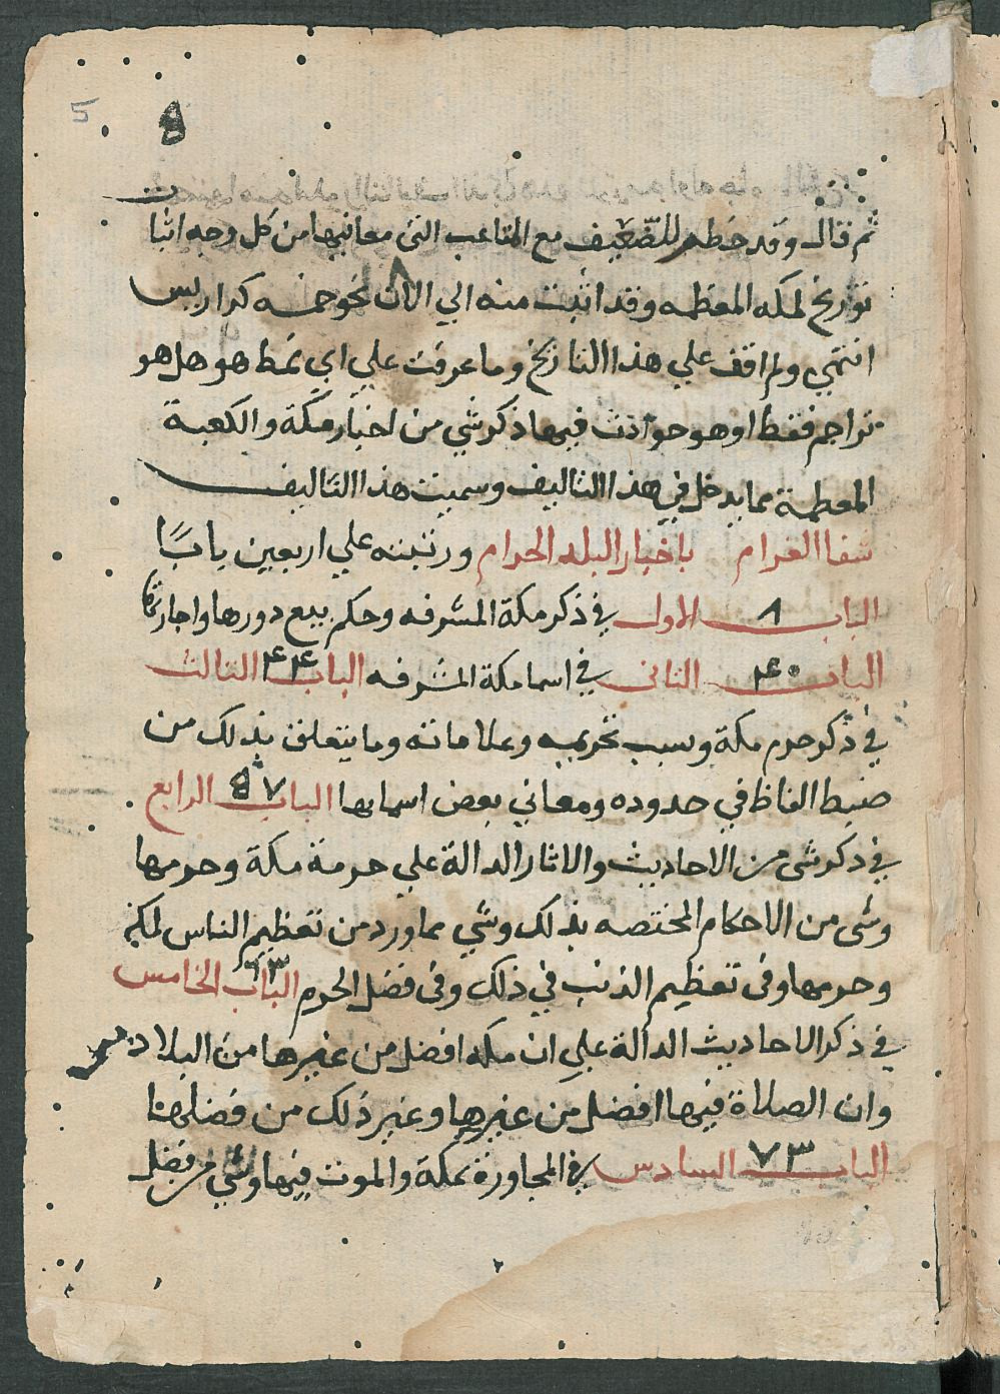 ثم قال وقد خطر للضعيف مع المتاعب التي معانيها من كل وجه اثبات
تواريخ لمكه المعظمه وقد اثبت منه الي الان نحو خمسه كراريس
انتهي ولم اقف علي هذا التاريخ وما عرفت علي اي نمط هو هل هو
تراجم فقط او هو حوادث فيها ذكر شي من اخبار مكة والكعبة
المعظمة مما يدخل في هذا التاليف وسميت هذا التاليف
شفا الغرام باخبار البلد الحرام ورتبته علي اربعين بابا
الباب ٨ الاول في ذكر مكة المشرفه وحكم بيع دورها واجارتها
الباب ٤٠ الثاني في اسما مكة المشرفه الباب ٤٤ الثالث
في ذكر حرم مكة وسبب تحريمه وعلاماته وما يتعلق بذلك من
ضبط الفاظ في حدوده ومعاني بعض اسمايها الباب الرابع
في ذكر شي من الاحاديث والاثار الدالة علي حرمة مكة وحرمها
وشي من الاحكام المختصه بذلك وشي مما ورد من تعظيم الناس لمكة
وحرمها وفي تعظيم الذنب في ذلك وفي فضل الحرم الباب الخامس
في ذكر الاحاديث الدالة علي ان مكه افضل من غيرها من البلاد
وان الصلاة فيها افضل من غيرها وغير ذلك من فضلها
الباب ٧٣ السادس في المجاورة بمكة والموت فيها وشي من فضل